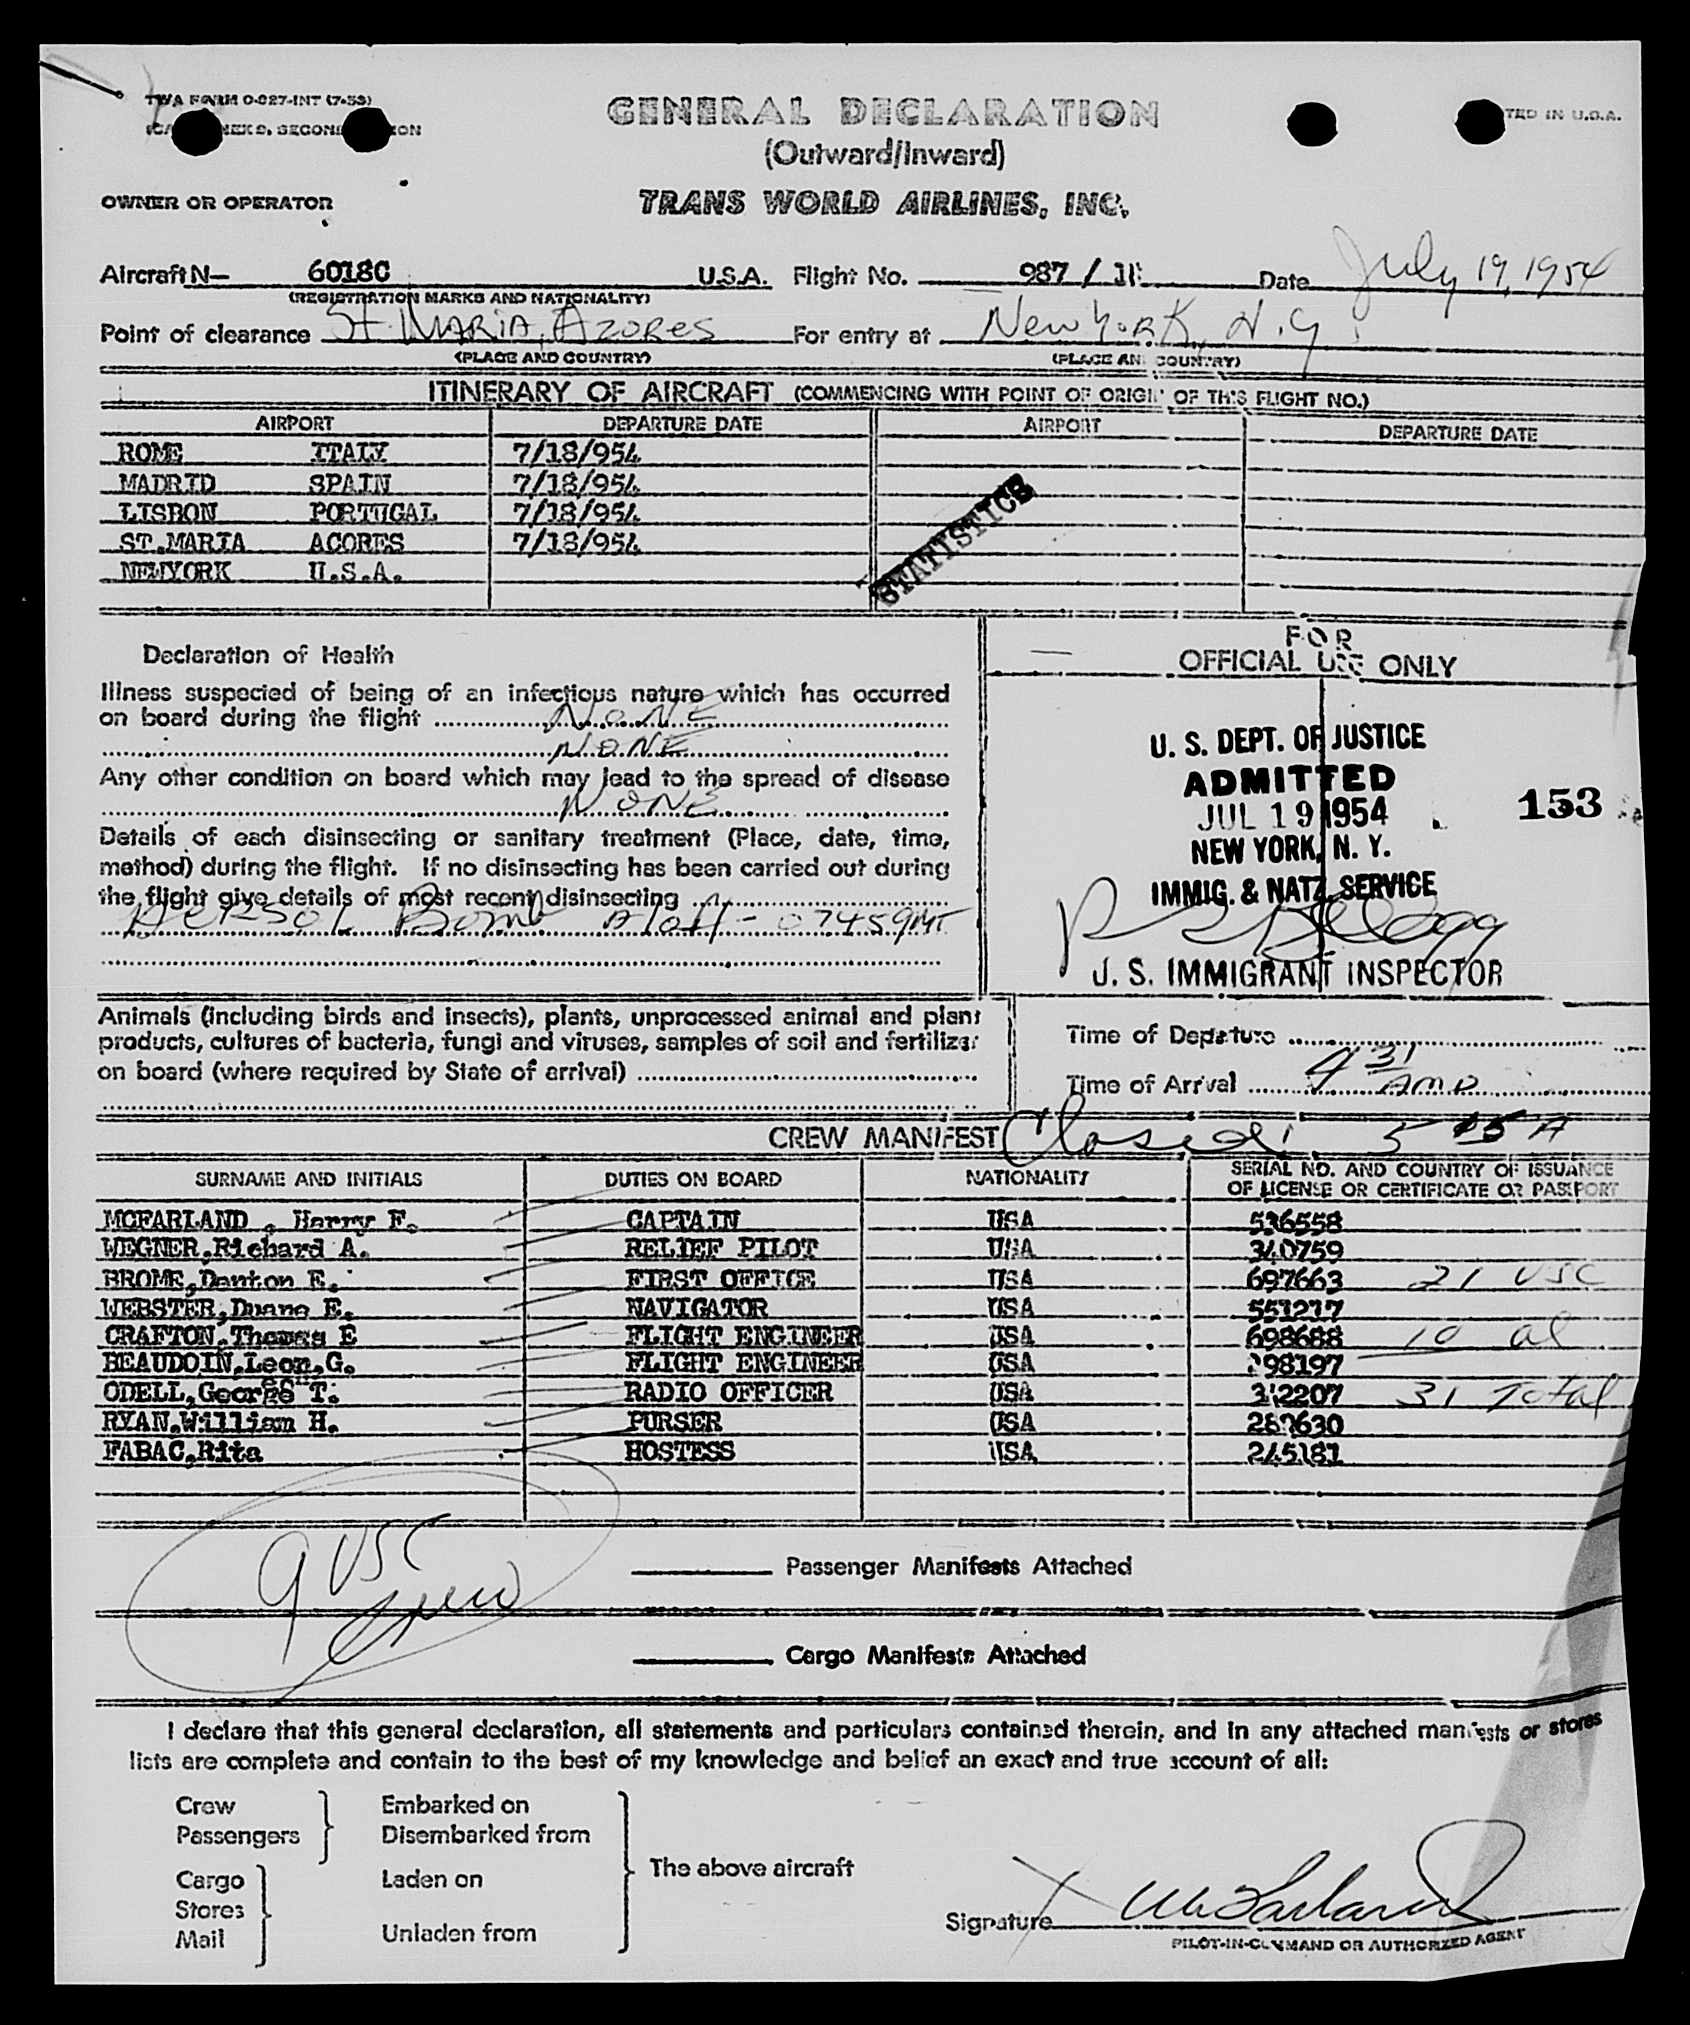 TWA FORM 0-827-INT (7-53)
GENERAL DECLARATION
TED IN U.S.A.
(Outward/Inward)
OWNER OR OPERATOR TRANS WORLD AIRLINES, INC.
Aircraft N— 6018C U.S.A. Flight No. 987 / 18 Date July 19, 1954
(REGISTRATION MARKS AND NATIONALITY)
Point of clearance St MARIA, AZORES For entry at New York, N.Y.
(PLACE AND COUNTRY) (PLACE AN COUNTRY)
ITINERARY OF AIRCRAFT (COMMENCING WITH POINT OF ORIGIN OF THIS FLIGHT NO.)
AIRPORT DEPARTURE DATE AIRPORT DEPARTURE DATE
ROME ITALY 7/18/954
MADRID SPAIN 7/18/954
LISBON PORTUGAL 7/18/954
ST.MARIA ACORES 7/18/954
NEWYORK U.S.A.
STATISTICS
Declaration of Health
Illness suspected of being of an infectious nature which has occurred
on board during the flight NONE
NONE
Any other condition on board which may lead to the spread of disease
NONE
Details of each disinsecting or sanitary treatment (Place, date, time,
method) during the flight. If no disinsecting has been carried out during
the flight give details of most recent disinsecting
AERSOL Bomb Aloft - 0745 GMT
FOR
OFFICIAL USE ONLY
U. S. DEPT. OF JUSTICE
ADMITTED
JUL 19 1954
153
NEW YORK, N. Y.
IMMIG. & NATZ. SERVICE
U. S. IMMIGRANT INSPECTOR
Animals (including birds and insects), plants, unprocessed animal and plant
products, cultures of bacteria, fungi and viruses, samples of soil and fertilizer
on board (where required by State of arrival)
Time of Departure
Time of Arrival 4 31 AMD
CREW MANIFEST Closed 5 15 A
SURNAME AND INITIALS DUTIES ON BOARD NATIONALITY SERIAL NO. AND COUNTRY OF ISSUANCE
OF LICENSE OR CERTIFICATE OR PASSPORT
MCFARLAND , Harry F. CAPTAIN USA 536558
WEGNER,Richard A. RELIEF PILOT USA 340759
BROME,Denton E. FIRST OFFICE USA 697663 21 USC
WEBSTER,Duane E. NAVIGATOR USA 551217
CRAFTON,Thomas E FLIGHT ENGINEER USA 698688 10 al
BEAUDOIN,Leon,G. FLIGHT ENGINEER USA 98197
ODELL,George T. RADIO OFFICER USA 312207 31 Total
RYAN,William H. PURSER USA 630
FABAC,Rita HOSTESS USA 245181
9 USC
Crew
Passenger Manifests Attached
Cargo Manifests Attached
I declare that this general declaration, all statements and particulars contained therein, and in any attached manifests or stores
lists are complete and contain to the best of my knowledge and belief an exact and true account of all:
Crew Embarked on
Passengers Disembarked from
The above aircraft
Cargo Laden on
Stores
Mail Unladen from
Signature X McFarland
PILOT-IN-COMMAND OR AUTHORIZED AGENT